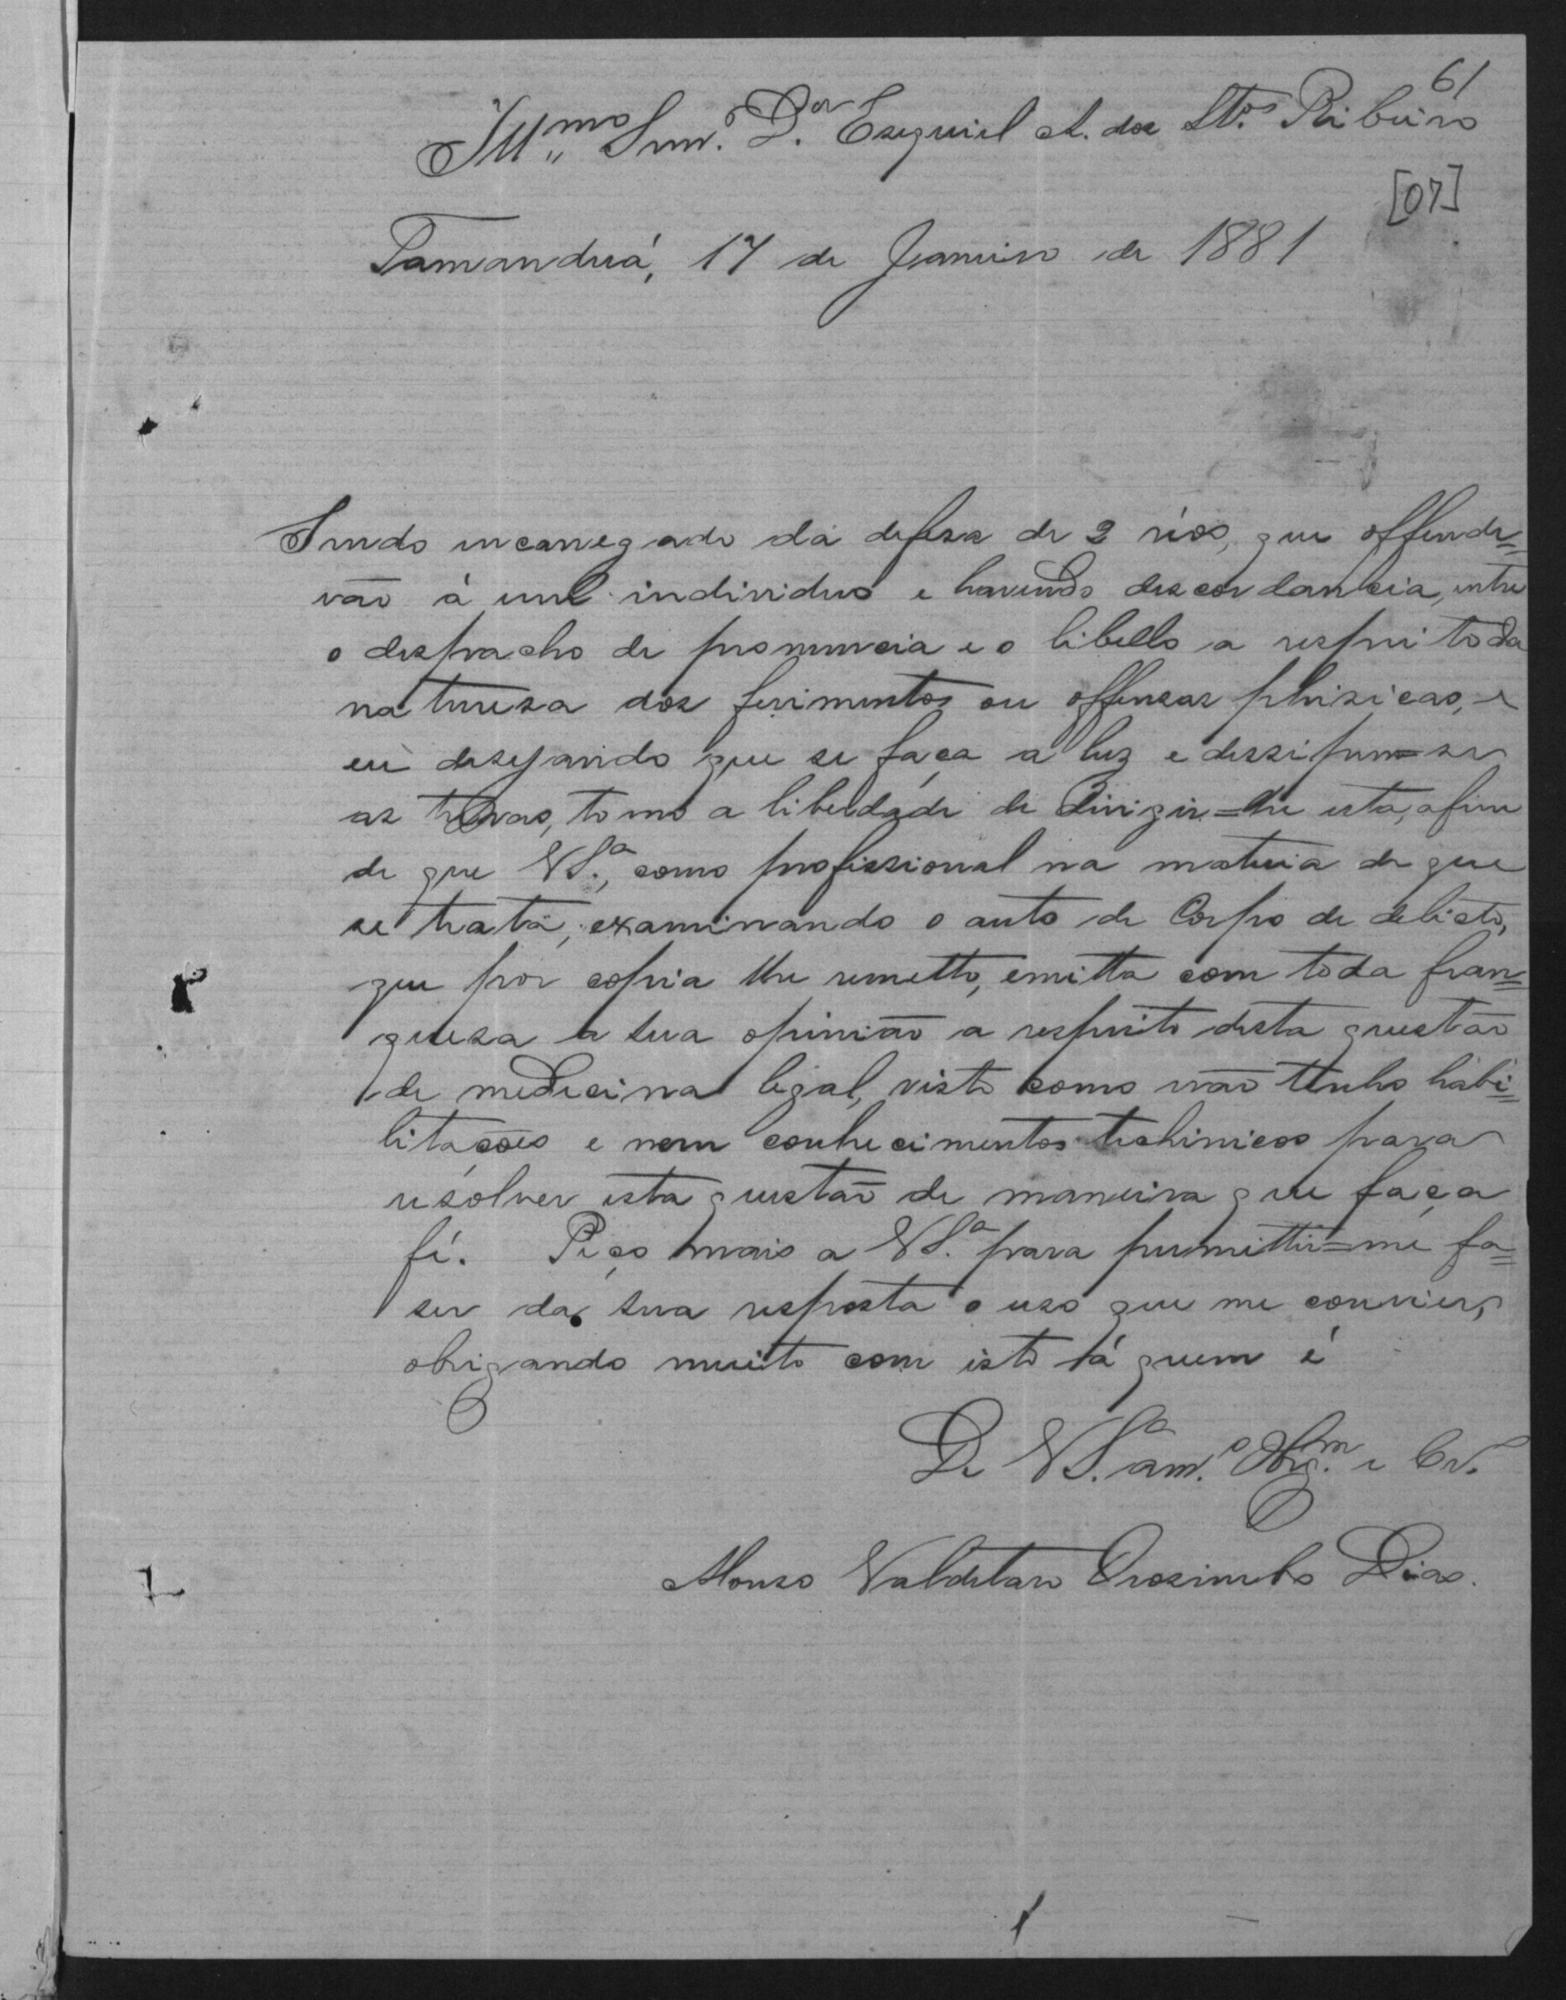 61
Illmo Snr. Dor Esequiel A. dos Stos Ribeiro
[07]
Tamanduá, 17 de Janeiro de 1881
Sendo encarregado da defesa de 2 réos, que offende=
rão á um individuo e havendo descordancia, entre
o despacho de pronuncia e o libello a respeito da
naturesa dos ferimentos ou offensas phisicas, e
eu desejando que se faça a luz e dessipem=se
as trevas, tomo a liberdade de dirigir=lhe esta, afim
de que VSa., como profissional na materia de que
se trata, examinando o auto de Corpo de delicto,
que por copia lhe remetto, emitta com toda fran=
quesa a sua opinião a respeito desta questão
de medicina legal, visto como não tenho habi=
litações e nem conhecimentos techinicos para
resolver esta questão de maneira que faça
fé. Peço mais a VSa. para permittir=me fa=
ser da sua resposta o uso que me convier,
obrigando muito com isto á quem é
De VSa. amo. Obrgm. e Cr.
Alonso Valdetaro Orosimbo Dias.